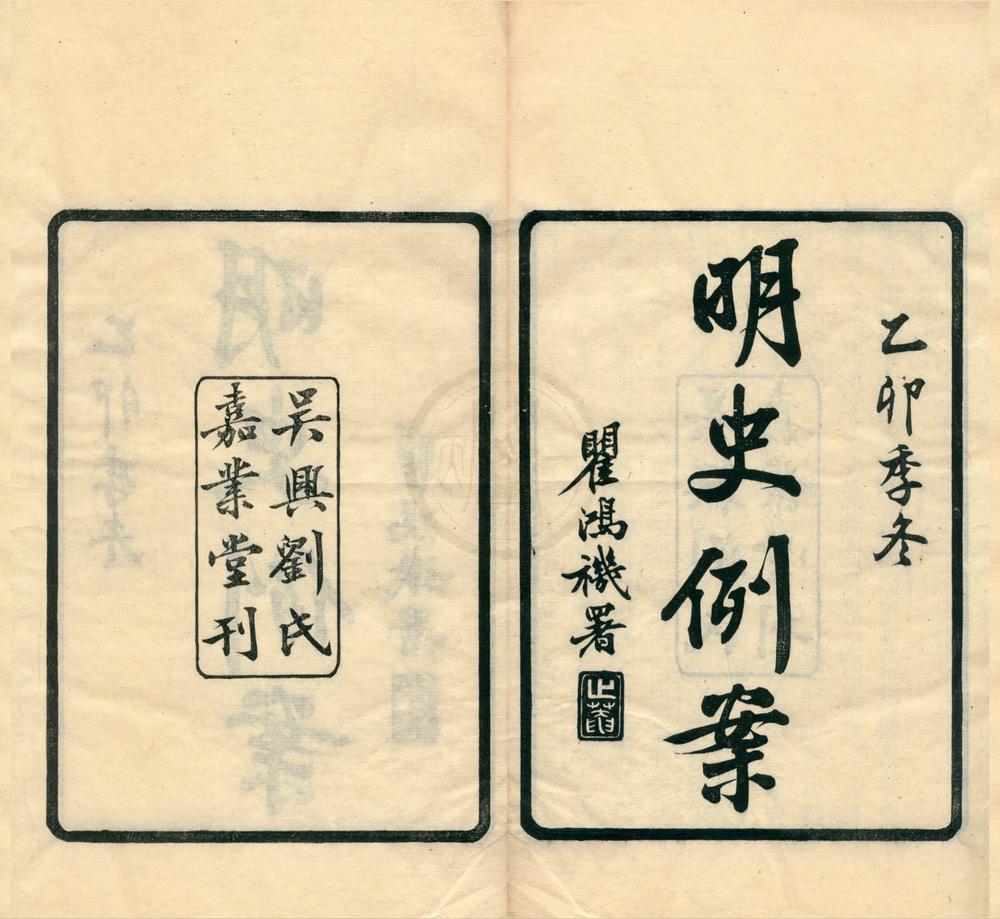 乙卯季冬
明史例案
瞿鴻禨署
止盦
吳興劉氏
嘉業堂刊